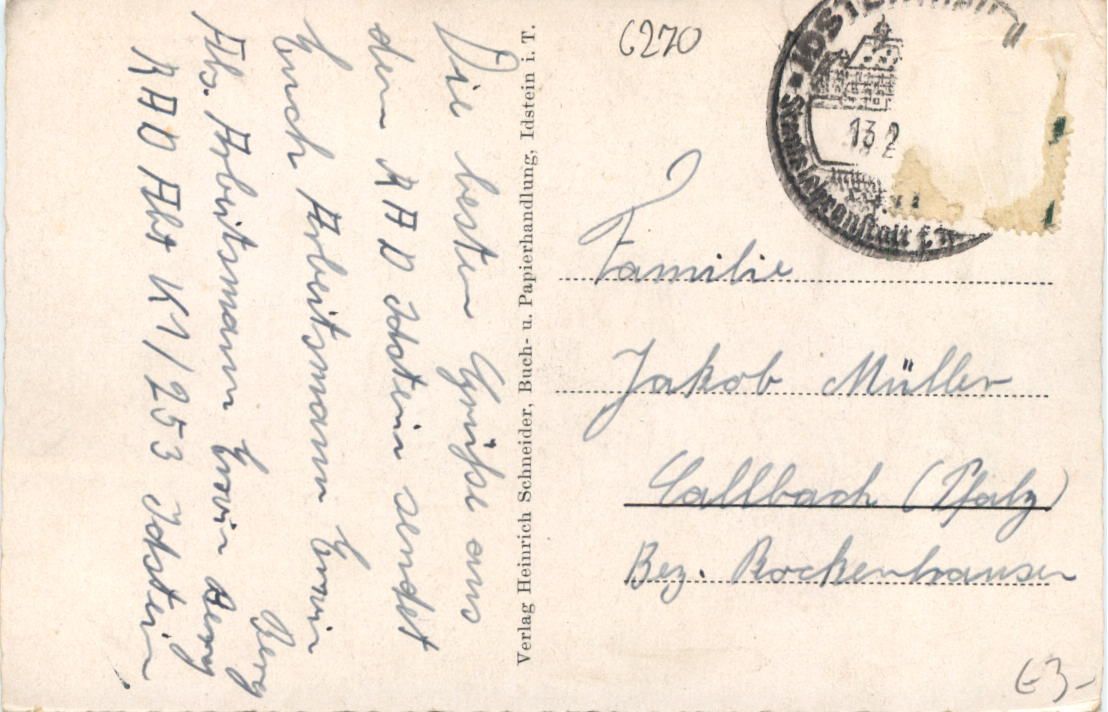 Die besten Grüße aus
dem RAD Idstein sendet
Euch Arbeitsmann Erwin
Berg
Abs. Arbeitsmann Erwin Berg
RAD Abt K1/253 Idstein
Verlag Heinrich Schneider, Buch- u. Papierhandlung, Idstein i. T.
6270
IDSTEIN
13 2
Familie
Jakob Müller
Callbach (Pfalz)
Bez. Rockenhausen
€3-